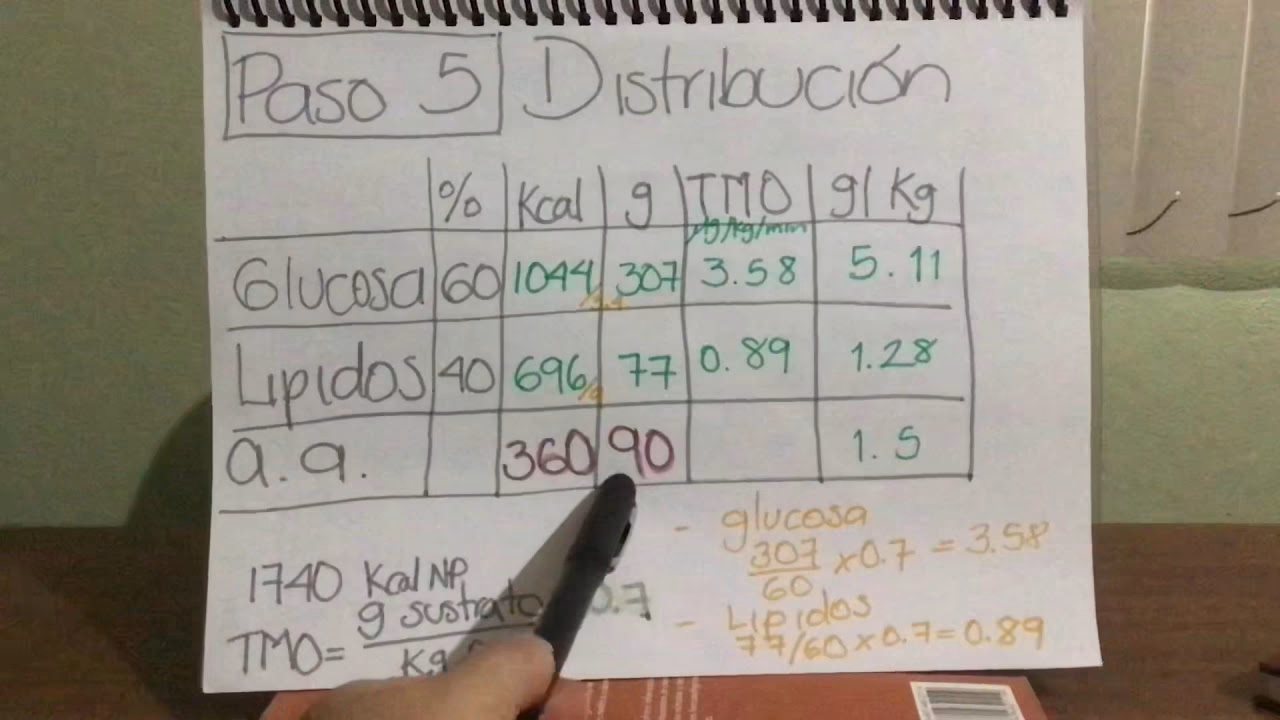 Paso 5 Distribución
% Kcal g TMO g/Kg
mg/kg/min
Glucosa 60 1044 307 3.58 5.11
/3.4
Lipidos 40 696 77 0.89 1.28
/9
a.a. 360 90 1.5
- glucosa
307 x 0.7 = 3.58
60
- Lipidos
77/60 x 0.7 = 0.89
1740 Kcal NP
TMO= g sustrato 0.7
Kg